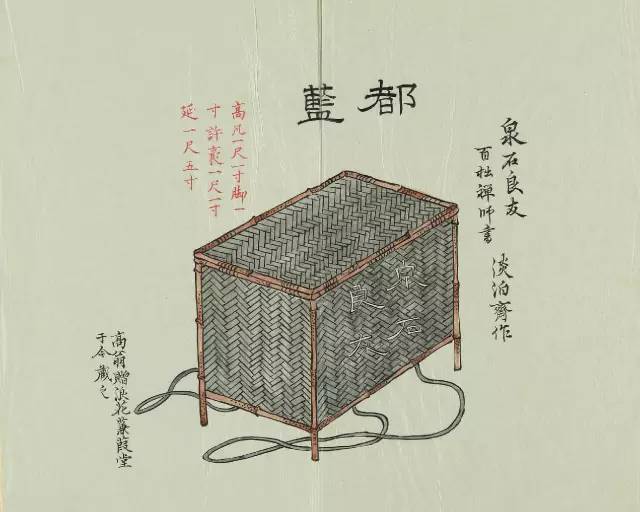 都藍
泉石良友
百拙禪師書
淡泊齊作
高凡一尺一寸脚一
寸許袤一尺一寸
延一尺五寸
泉石
良友
高翁贈浪花蒹葭堂
于今藏之